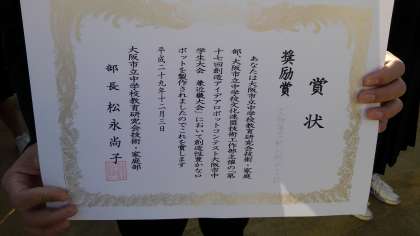 賞状
奨励賞
あなたは大阪市立中学校教育研究会技術・家庭
部、大阪市立中学校文化連盟技術工作部主催の「第
十七回創造アイデアロボットコンテスト大阪市中
学生大会 兼近畿大会」において創造性豊かなロ
ボットを製作されましたのでこれを賞します
平成二十九年十二月三日
大阪市立中学校教育研究会技術・家庭部
部長 松永尚子